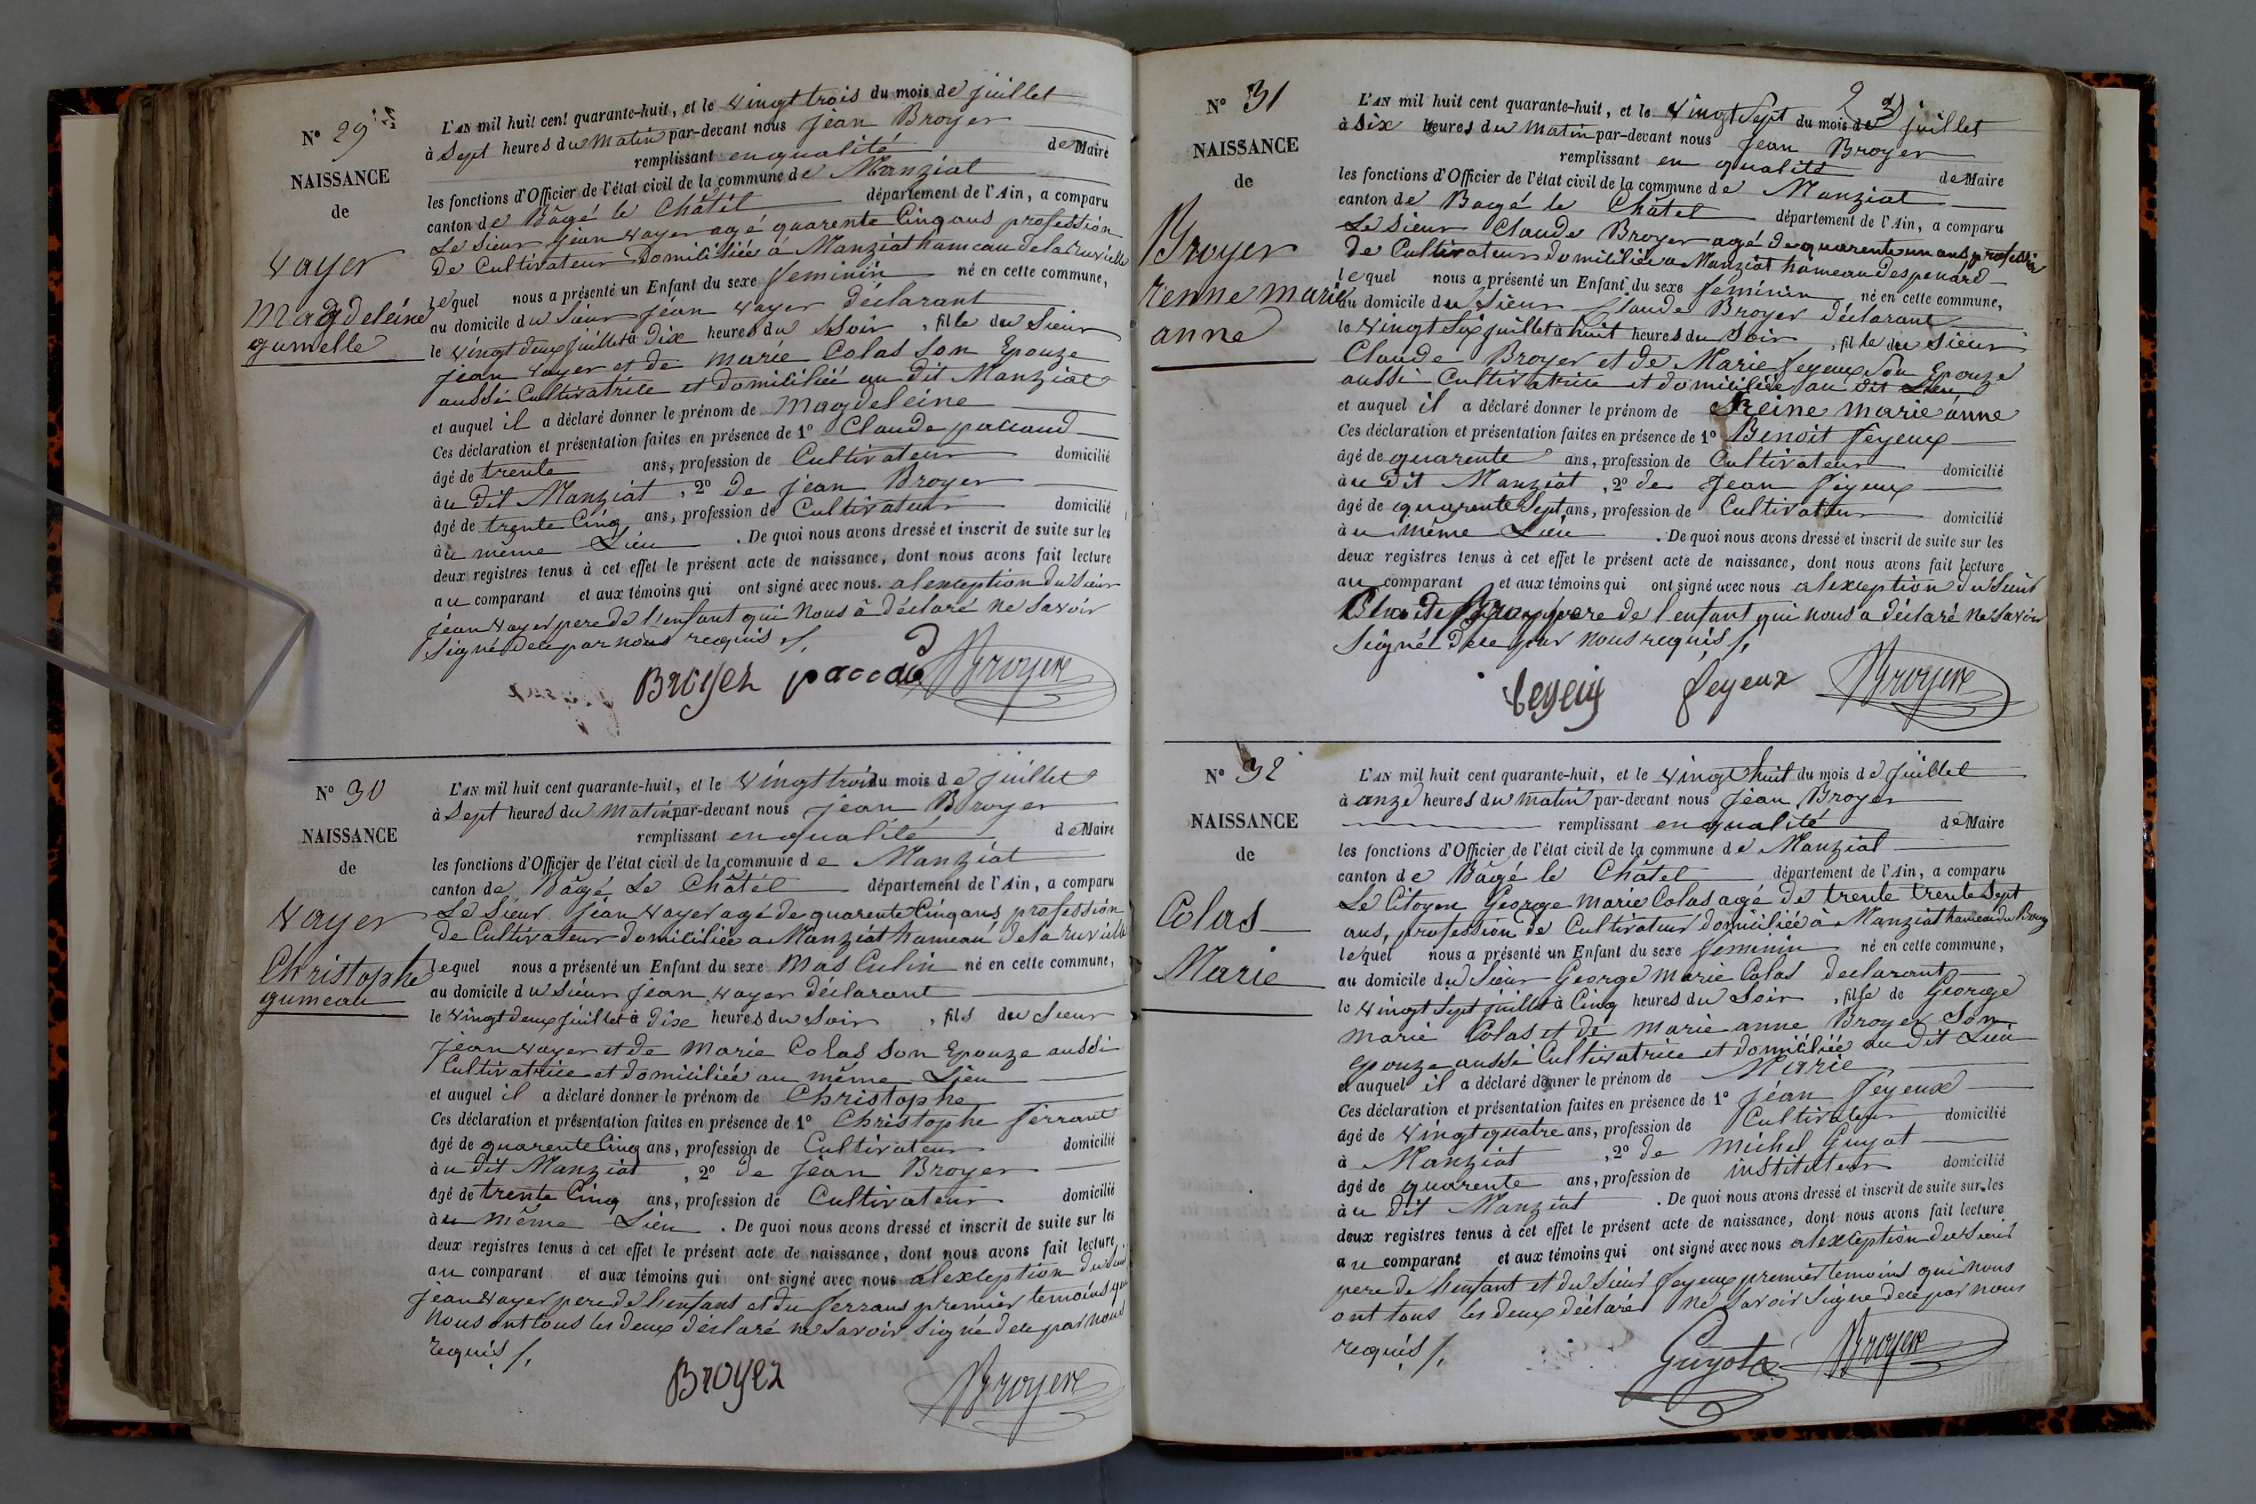 N° 29
NAISSANCE
de
Vayer
Magdeleine
gumelle
L'AN mil huit cent quarante-huit, et le vingt trois du mois de juillet
à Sept heures du matin par-devant nous jean Broyer
remplissant en qualité de Maire
les fonctions d'Officier de l'état civil de la commune de Manziat
canton de Bâgé le Châtel département de l'Ain, a comparu
Le Sieur jean Vayer agé quarente Cinq ans profession
de Cultivateur domiciliée à Manziat hameau de la ruvielle
lequel nous a présenté un Enfant du sexe feminin né en cette commune,
au domicile du Sieur jean Vayer déclarant
le vingt deux juillet à Dix heures du Soir, fille du Sieur
jean Vayer et de Marie Colas Son Epouze
aussi Cultivatrice et domiciliée au dit Manziat
et auquel il a déclaré donner le prénom de Magdeleine
Ces déclaration et présentation faites en présence de 1° Claude paccaud
âgé de trente ans, profession de Cultivateur domicilié
à u dit Manziat, 2° de jean Broyer
âgé de trente Cinq ans, profession de Cultivateur domicilié
à u même Lieu. De quoi nous avons dressé et inscrit de suite sur les
deux registres tenus à cet effet le présent acte de naissance, dont nous avons fait lecture
au comparant et aux témoins qui ont signé avec nous. alexception du Sieur
jean Vayer pere de l'enfant qui nous à déclaré ne Savoir
Signé dece par nous requis ./.
Broyer paccad Broyer
N° 30
NAISSANCE
de
Vayer
Christophe
gumeau
L'AN mil huit cent quarante-huit, et le vingt trois du mois de juillet
à Sept heures du matin par-devant nous jean Broyer
remplissant en qualité de Maire
les fonctions d'Officier de l'état civil de la commune de Manziat
canton de Bâgé Le Châtel département de l'Ain, a comparu
Le Sieur jean Vayer agé de quarente Cinq ans, profession
de Cultivateur domiciliée a Manziat hameau de la ruvielle
lequel nous a présenté un Enfant du sexe Masculin né en cette commune,
au domicile du Sieur jean Vayer déclarant
le vingt deux juillet à Dix heures du Soir, fils du Sieur
jean Vayer et de Marie Colas Son Epouze aussi
Cultivatrice et domiciliée au même Lieu
et auquel il a déclaré donner le prénom de Christophe
Ces déclaration et présentation faites en présence de 1° Christophe ferrant
âgé de quarente Cinq ans, profession de Cultivateur domicilié
à u dit Manziat, 2° de jean Broyer
âgé de trente Cinq ans, profession de Cultivateur domicilié
à u même Lieu. De quoi nous avons dressé et inscrit de suite sur les
deux registres tenus à cet effet le présent acte de naissance, dont nous avons fait lecture,
au comparant et aux témoins qui ont signé avec nous alexception du Sieur
jean Vayer pere de l'enfant et du ferrant premier temoins qui
nous ont tous les deux déclaré ne Savoir Signé dece par nous
requis ./.
Broyer Broyer
N° 31
NAISSANCE
de
Broyer
renne marie
anne
L'AN mil huit cent quarante-huit, et le vingt Sept du mois de juillet
à Six heures du matin par-devant nous jean Broyer
remplissant en qualité de Maire
les fonctions d'Officier de l'état civil de la commune de Manziat
canton de Bagé le Châtel département de l'Ain, a comparu
Le Sieur Claude Broyer agé de quarente un ans, profession
de Cultivateur domiciliée a Manziat hameau des penard
lequel nous a présenté un Enfant du sexe féminin né en cette commune,
au domicile du Sieur Claude Broyer déclarant
le vingt Six juillet à huit heures du Soir, fille du Sieur
Claude Broyer et de Marie feyeux Son Epouze
aussi Cultivatrice et domiciliée au dit Lieu
et auquel il a déclaré donner le prénom de Reine marie anne
Ces déclaration et présentation faites en présence de 1° Benoit feyeux
âgé de quarente ans, profession de Cultivateur domicilié
à u dit Manziat, 2° de jean feyeux
âgé de quarente Sept ans, profession de Cultivateur domicilié
à u même Lieu. De quoi nous avons dressé et inscrit de suite sur les
deux registres tenus à cet effet le présent acte de naissance, dont nous avons fait lecture
au comparant et aux témoins qui ont signé avec nous alexception du Sieur
pere de l'enfant qui nous a déclaré ne Savoir
Signé dece par nous requis ./.
feyeux feyeux Broyer
N° 32
NAISSANCE
de
Colas
Marie
L'AN mil huit cent quarante-huit, et le vingt huit du mois de juillet
à onze heures du matin par-devant nous jean Broyer
remplissant en qualité de Maire
les fonctions d'Officier de l'état civil de la commune de Manziat
canton de Bâgé le Châtel département de l'Ain, a comparu
Le Citoyen George marie Colas agé de trente trente Sept
ans, profession de Cultivateur domiciliée à Manziat hameau du Bourg
lequel nous a présenté un Enfant du sexe feminin né en cette commune,
au domicile du Sieur George marie Colas declarant
le vingt Sept juillet à Cinq heures du Soir, fille de George
marie Colas et de marie anne Broyer Son
epouze aussi Cultivatrice et domiciliée au dit Lieu
et auquel il a déclaré donner le prénom de Marie
Ces déclaration et présentation faites en présence de 1° jean feyeux
âgé de vingt quatre ans, profession de Cultivateur domicilié
à Manziat, 2° de michel Guyot
âgé de quarente ans, profession de instituteur domicilié
à u dit Manziat. De quoi nous avons dressé et inscrit de suite sur les
deux registres tenus à cet effet le présent acte de naissance, dont nous avons fait lecture
au comparant et aux témoins qui ont signé avec nous alexception du Sieur
pere de l'enfant et du Sieur feyeux premier temoins qui nous
ont tous les deux déclaré ne Savoir Signé dece par nous
requis ./.
Guyot Broyer